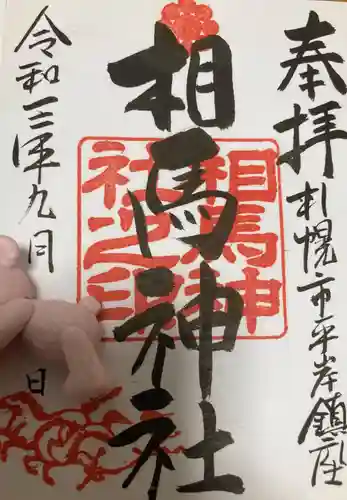 奉拝
札幌市平岸鎮座
相馬神社
相馬神
社之印
令和三年九月
日